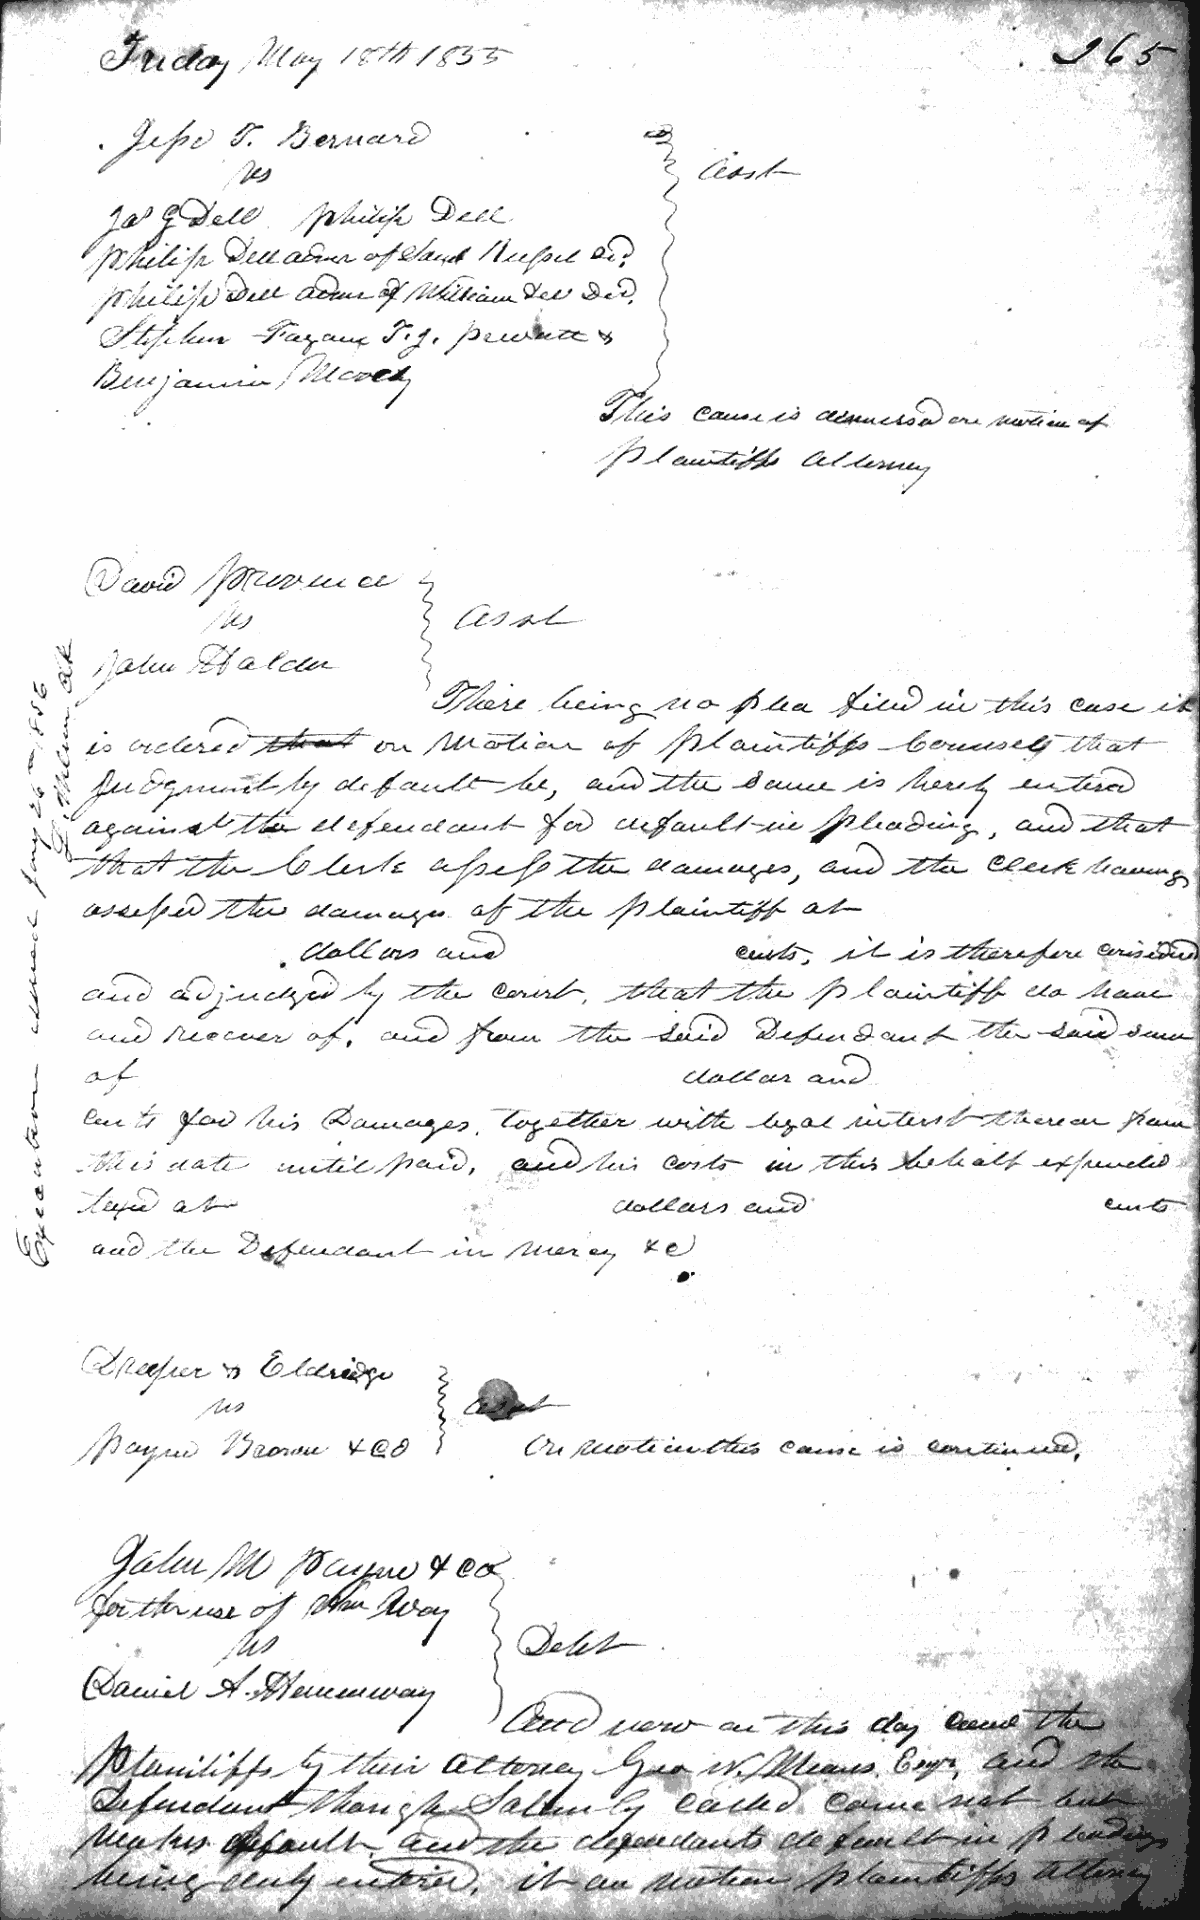 Friday May 18th 1855
265
Jesse T. Bernard
vs
Jas G Dell Philip Dell
Philip Dell admr of Saml Russel Dd.
Philip Dell admr of William Dell Decd.
Stephen Fagan T. J. Prevatt &
Benjamin Moody
Asst
This cause is dismissed on motion of
Plaintiffs Attorney
David Provence
vs
John Halder
Asst
There being no plea filed in this case it
is ordered that on Motion of Plaintiffs Counsel that
Judgment by default be, and the same is hereby entered
against the defendant for default in pleading, and that
that the Clerk assess the damages, and the Clerk having
assessed the damages of the plaintiff at
dollars and cents, it is therefore considered
and adjudged by the court, that the plaintiff do have
and recover of, and from the said Defendant the said sum
of dollar and
cents for his Damages, together with legal interest thereon from
this date until paid, and his costs in this behalf expended
taxed at dollars and cents
and the Defendant in mercy &c
Execution issued Jany 26th 1856
Clk
Draper & Eldridge
vs
Payne Brown & Co
Asst
On motion this cause is continued.
John M Payne & Co
for the use of Wm Way
vs
Daniel A. Hemenway
Debt
And now on this day came the
Plaintiffs by their Attorney Geo W. Means Esqr, and the
Defendant though Solemnly called came not but
makes default, and the defendants default in pleading
being duly entered, it on motion plaintiffs attorney